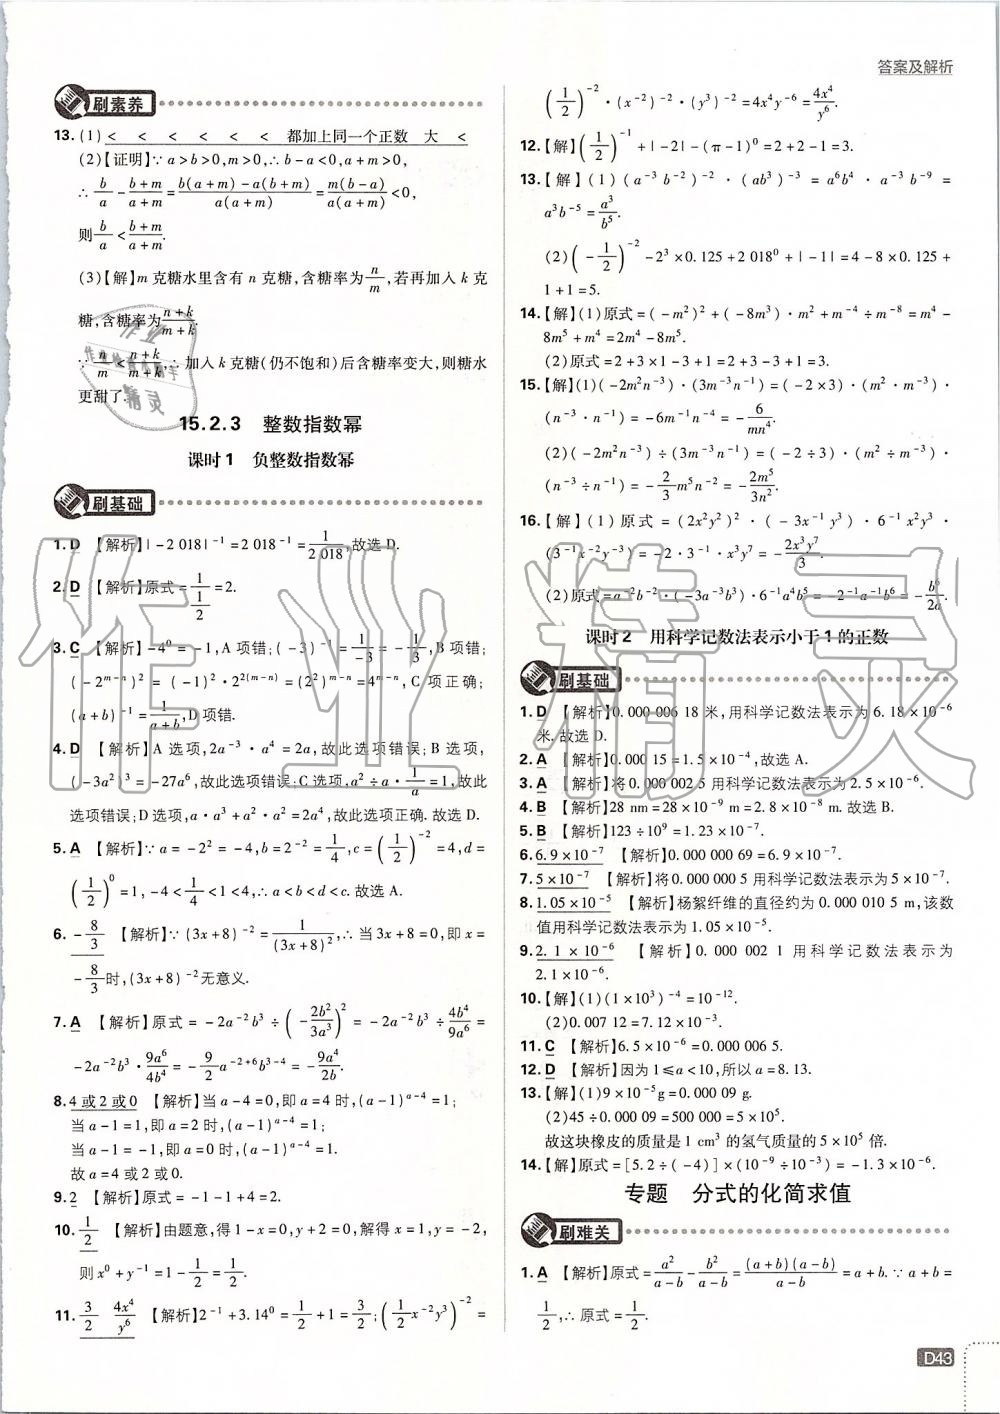 答案及解析
刷素养
13. (1) < < < < < < 都加上同一个正数 大 <
(2)【证明】∵a>b>0,m>0,∴b-a<0,a+m>0,
∴b/a-(b+m)/(a+m)=(b(a+m)-a(b+m))/(a(a+m))=(m(b-a))/(a(a+m))<0,
则b/a<(b+m)/(a+m).
(3)【解】m克糖水里含有n克糖,含糖率为n/m.若再加入k克
糖,含糖率为(n+k)/(m+k).
∵n/m<(n+k)/(m+k),∴加入k克糖(仍不饱和)后含糖率变大,则糖水
更甜了.
15.2.3 整数指数幂
课时1 负整数指数幂
刷基础
1. D 【解析】|-2 018|⁻¹=2 018⁻¹=1/(2 018),故选D.
2. D 【解析】原式=1/(1/2)=2.
3. C 【解析】-4⁰=-1,A项错;(-3)⁻¹=1/(-3)=-1/3,B项错;
(-2^(m-n))²=(-1)²·2^(2(m-n))=(2²)^(m-n)=4^(m-n),C项正确;
(a+b)⁻¹=1/(a+b),D项错.
4. D 【解析】A选项,2a⁻³·a⁴=2a,故此选项错误;B选项,
(-3a²)³=-27a⁶,故此选项错误;C选项,a²÷a·1/a=1,故此
选项错误;D选项,a·a³+a²·a²=2a⁴,故此选项正确.故选D.
5. A 【解析】∵a=-2²=-4,b=2⁻²=1/4,c=(1/2)⁻²=4,d=
(1/2)⁰=1,-4<1/4<1<4,∴a<b<d<c.故选A.
6. -8/3 【解析】∵(3x+8)⁻²=1/(3x+8)²,∴当3x+8=0,即x=
-8/3时,(3x+8)⁻²无意义.
7. A 【解析】原式=-2a⁻²b³÷(-2b²/3a³)²=-2a⁻²b³÷4b⁴/9a⁶=
-2a⁻²b³·9a⁶/4b⁴=-9/2a⁻²⁺⁶b³⁻⁴=-9a⁴/2b.
8. 4或2或0 【解析】当a-4=0,即a=4时,(a-1)^(a-4)=1;
当a-1=1,即a=2时,(a-1)^(a-4)=1;
当a-1=-1,即a=0时,(a-1)^(a-4)=1.
故a=4或2或0.
9. 2 【解析】原式=-1-1+4=2.
10. 1/2 【解析】由题意,得1-x=0,y+2=0,解得x=1,y=-2,
则x⁰+y⁻¹=1-1/2=1/2.
11. 3/2 4x⁴/y⁶ 【解析】2⁻¹+3.14⁰=1/2+1=3/2;(1/2x⁻²y³)⁻²=
(1/2)⁻²·(x⁻²)⁻²·(y³)⁻²=4x⁴y⁻⁶=4x⁴/y⁶.
12.【解】(1/2)⁻¹+|-2|-(π-1)⁰=2+2-1=3.
13.【解】(1)(a⁻³b⁻²)⁻²·(ab³)⁻³=a⁶b⁴·a⁻³b⁻⁹=
a³b⁻⁵=a³/b⁵.
(2)(-1/2)⁻²-2³×0.125+2 018⁰+|-1|=4-8×0.125+
1+1=5.
14.【解】(1)原式=(-m²)²+(-8m³)·m²+m⁻⁴÷m⁻⁸=m⁴-
8m⁵+m⁴=2m⁴-8m⁵.
(2)原式=2+3×1-3+1=2+3-3+1=3.
15.【解】(1)(-2m²n⁻³)·(3m⁻³n⁻¹)=(-2×3)·(m²·m⁻³)·
(n⁻³·n⁻¹)=-6m⁻¹n⁻⁴=-6/mn⁴.
(2)(-2m²n⁻³)÷(3m⁻³n⁻¹)=(-2÷3)·(m²÷m⁻³)·
(n⁻³÷n⁻¹)=-2/3m⁵n⁻²=-2m⁵/3n².
16.【解】(1)原式=(2x²y²)²·(-3x⁻¹y³)·6⁻¹x²y³=
(3⁻¹x⁻²y⁻³)=-2·x³y⁷=-2x³y⁷/3.
(2)原式=a⁻²b⁻²·(-3a⁻³b³)·6⁻¹a⁴b⁵=-2⁻¹a⁻¹b⁶=-b⁶/2a.
课时2 用科学记数法表示小于1的正数
刷基础
1. D 【解析】0.000 006 18米,用科学记数法表示为6.18×10⁻⁶
米.故选D.
2. A 【解析】0.000 15=1.5×10⁻⁴,故选A.
3. A 【解析】将0.000 002 5用科学记数法表示为2.5×10⁻⁶.
4. B 【解析】28 nm=28×10⁻⁹ m=2.8×10⁻⁸ m.故选B.
5. B 【解析】123÷10⁹=1.23×10⁻⁷.
6. 6.9×10⁻⁷ 【解析】0.000 000 69=6.9×10⁻⁷.
7. 5×10⁻⁷ 【解析】将0.000 000 5用科学记数法表示为5×10⁻⁷.
8. 1.05×10⁻⁵ 【解析】杨絮纤维的直径约为0.000 010 5 m,该数
值用科学记数法表示为1.05×10⁻⁵.
9. 2.1×10⁻⁶ 【解析】0.000 002 1用科学记数法表示为
2.1×10⁻⁶.
10.【解】(1)(1×10³)⁻⁴=10⁻¹².
(2)0.007 12=7.12×10⁻³.
11. C 【解析】6.5×10⁻⁶=0.000 006 5.
12. D 【解析】因为1≤a<10,所以a=8.13.
13.【解】(1)9×10⁻⁵g=0.000 09 g.
(2)45÷0.000 09=500 000=5×10⁵.
故这块橡皮的质量是1 cm³的氢气质量的5×10⁵倍.
14.【解】原式=[5.2÷(-4)]×(10⁻⁹÷10⁻³)=-1.3×10⁻⁶.
专题 分式的化简求值
刷难关
1. A 【解析】原式=a²/(a-b)-b²/(a-b)=((a+b)(a-b))/(a-b)=a+b.∵a+b=
1/2,∴原式=1/2.
D43
作业精灵